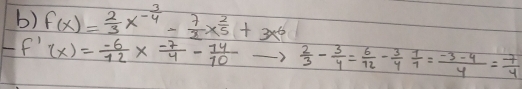 b) f(x) = 2/3 x^-3/4 - 7/2 x^2/5 + 3x^6
- f'(x) = -6/12 x^-7/4 - 14/10 → 2/3 - 3/4 = 6/12 - 3/4 1/1 = -3-4/4 = -7/4